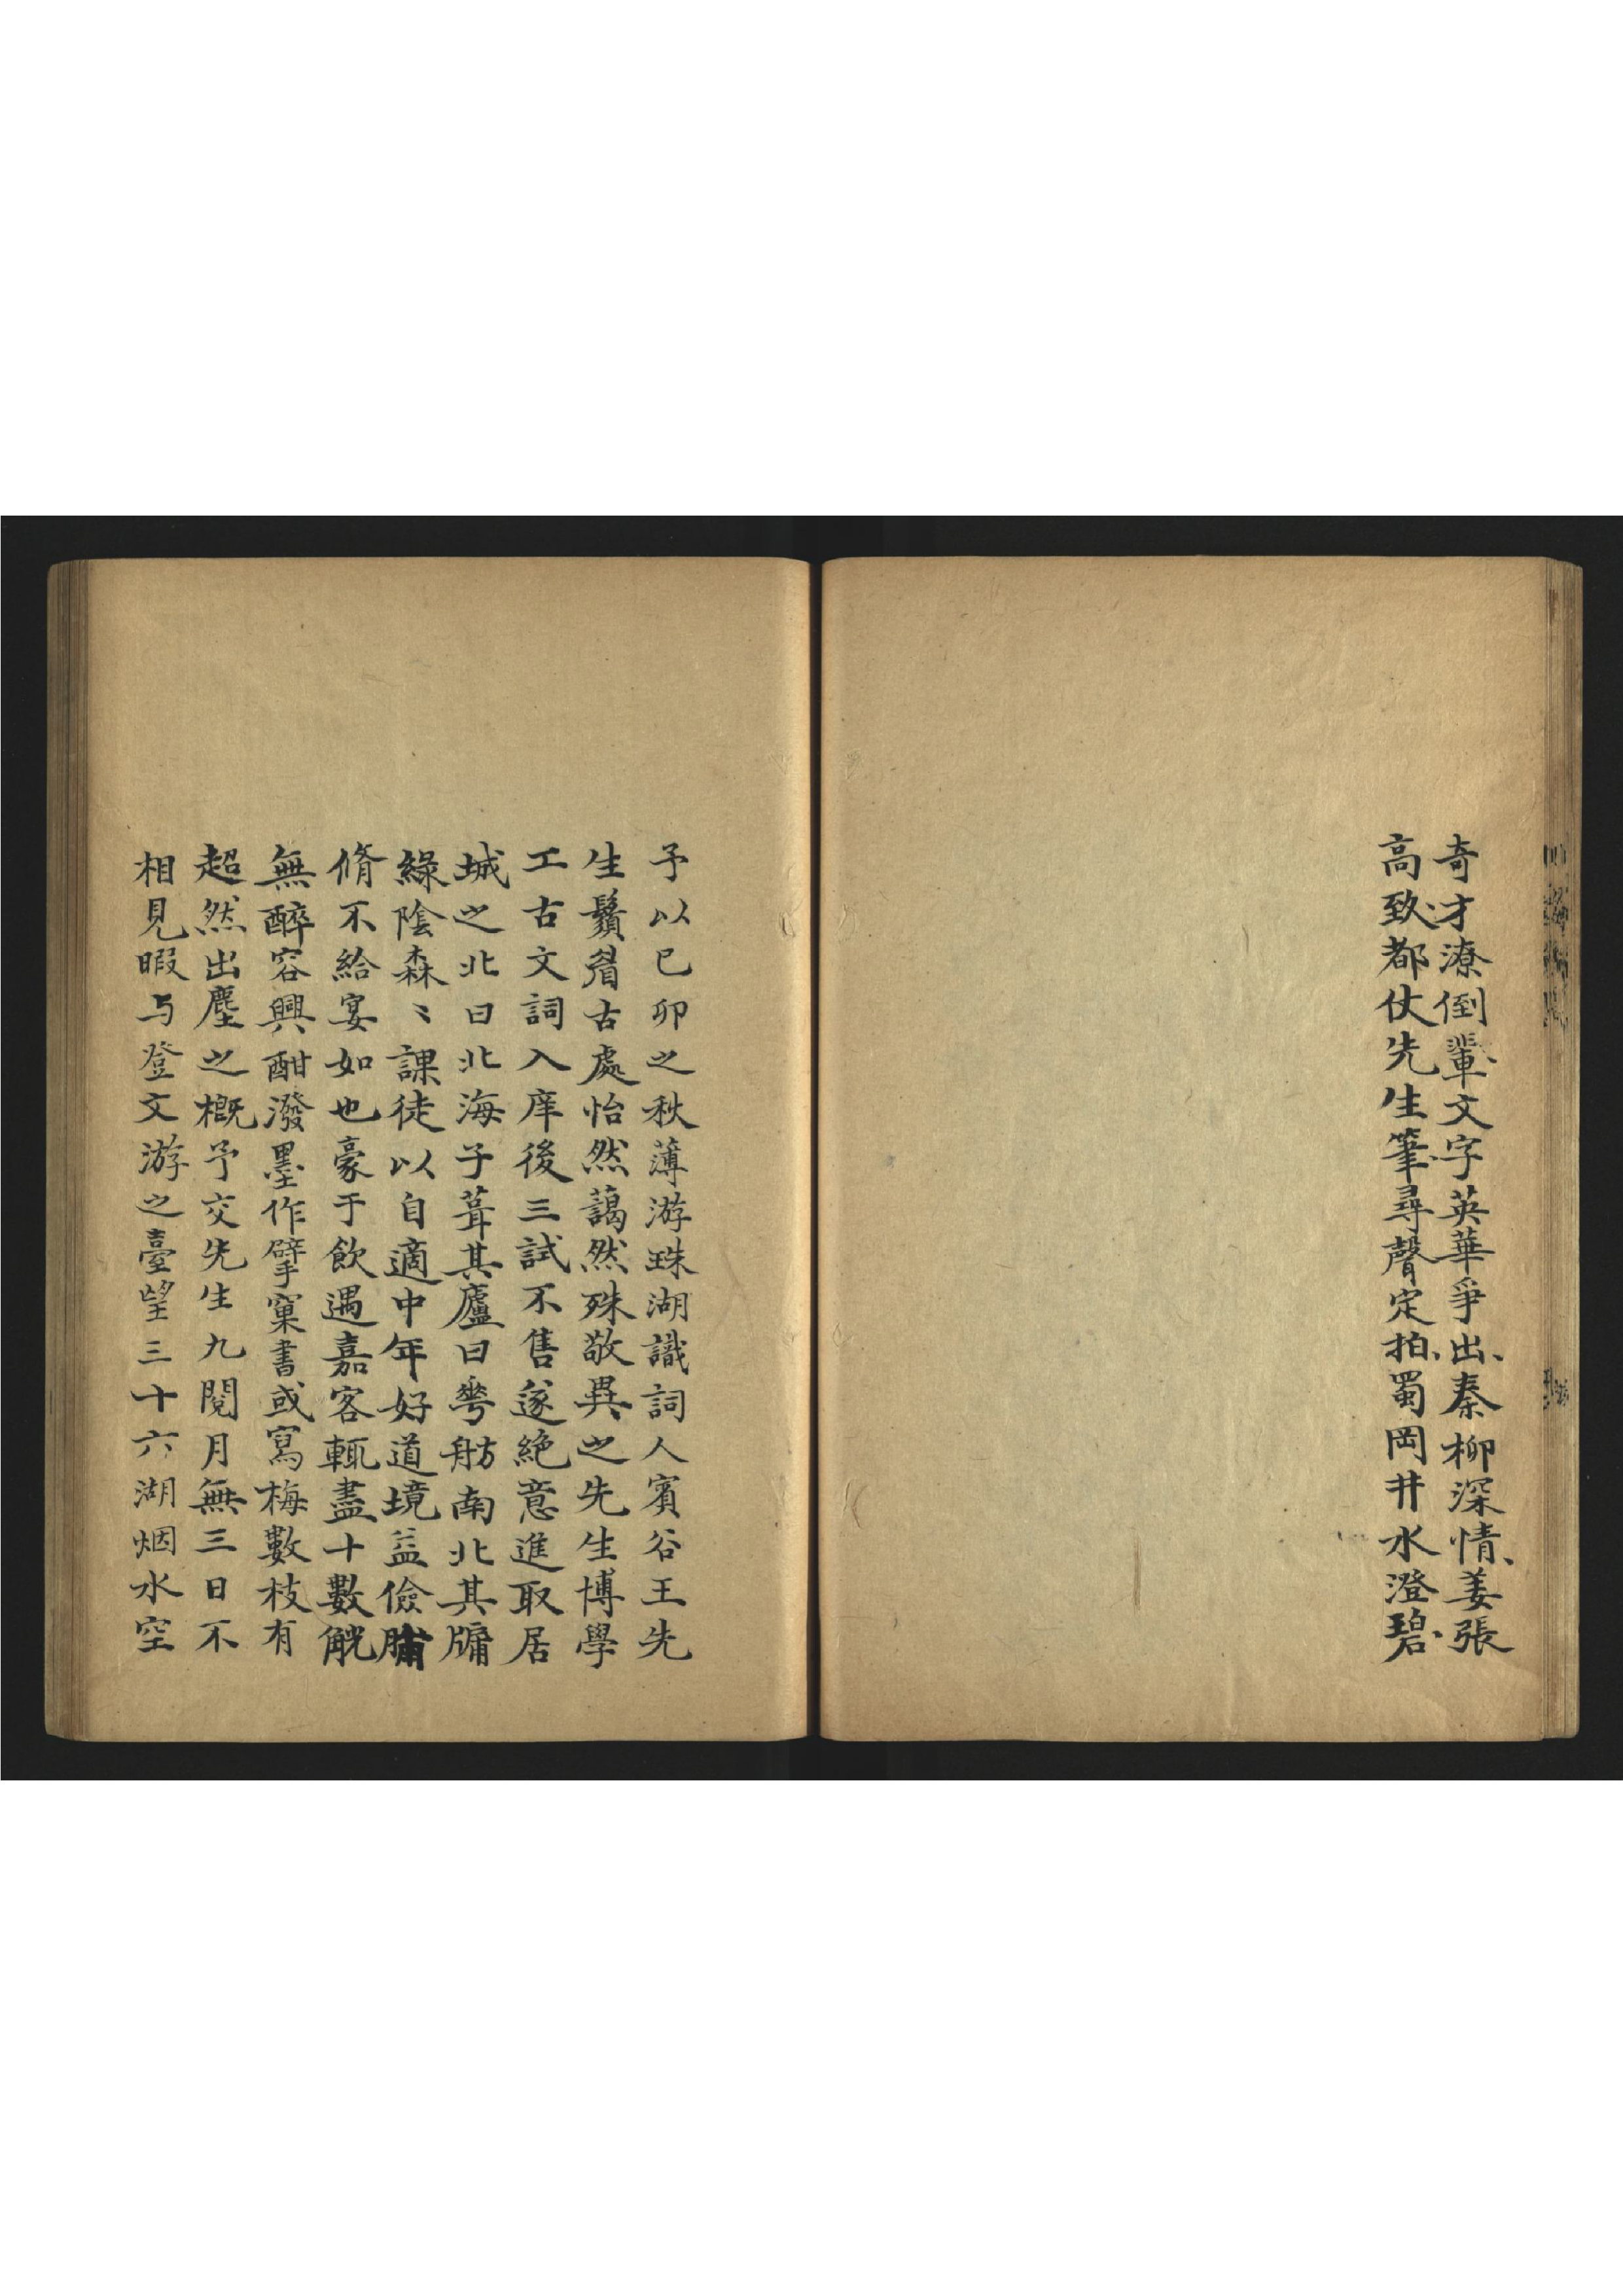 奇才潦倒輩文字英華爭出、秦柳深情、姜張
高致、都仗先生筆、尋聲定拍、蜀岡井水澄碧、
予以己卯之秋薄游珠湖識詞人賓谷王先
生鬚眉古處怡然藹然殊敬異之先生博學
工古文詞入庠後三試不售遂絕意進取居
城之北曰北海子葺其廬曰雩舫南北其牖
綠陰森〻課徒以自適中年好道境益儉脯
脩不給宴如也豪于飲遇嘉客輒盡十數觥
無醉容興酣潑墨作擘窠書或寫梅數枝有
超然出塵之概予交先生九閱月無三日不
相見暇与登文游之臺望三十六湖烟水空